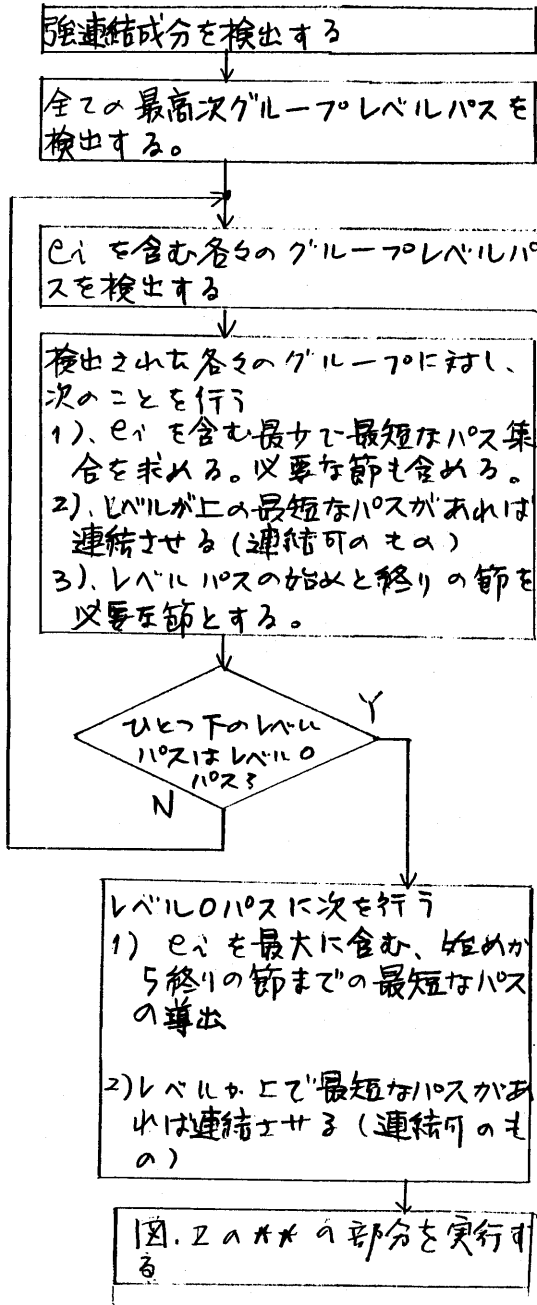 強連結成分を検出する
全ての最高次グループレベルパスを
検出する。
eiを含む各々のグループレベルパ
スを検出する
検出された各々のグループに対し、
次のことを行う
1)、eiを含む最少で最短なパス集
合を求める。必要な節も含める。
2)、レベルが上の最短なパスがあれば
連結させる(連結可のもの)
3)、レベルパスの始めと終りの節を
必要な節とする。
ひとつ下のレベル
パスはレベル0
パス?
Y
N
レベル0パスに次を行う
1) eiを最大に含む、始めか
ら終りの節までの最短なパス
の導出
2)レベルが上で最短なパスがあ
れば連結させる(連結可のも
の)
図.2の**の部分を実行す
る